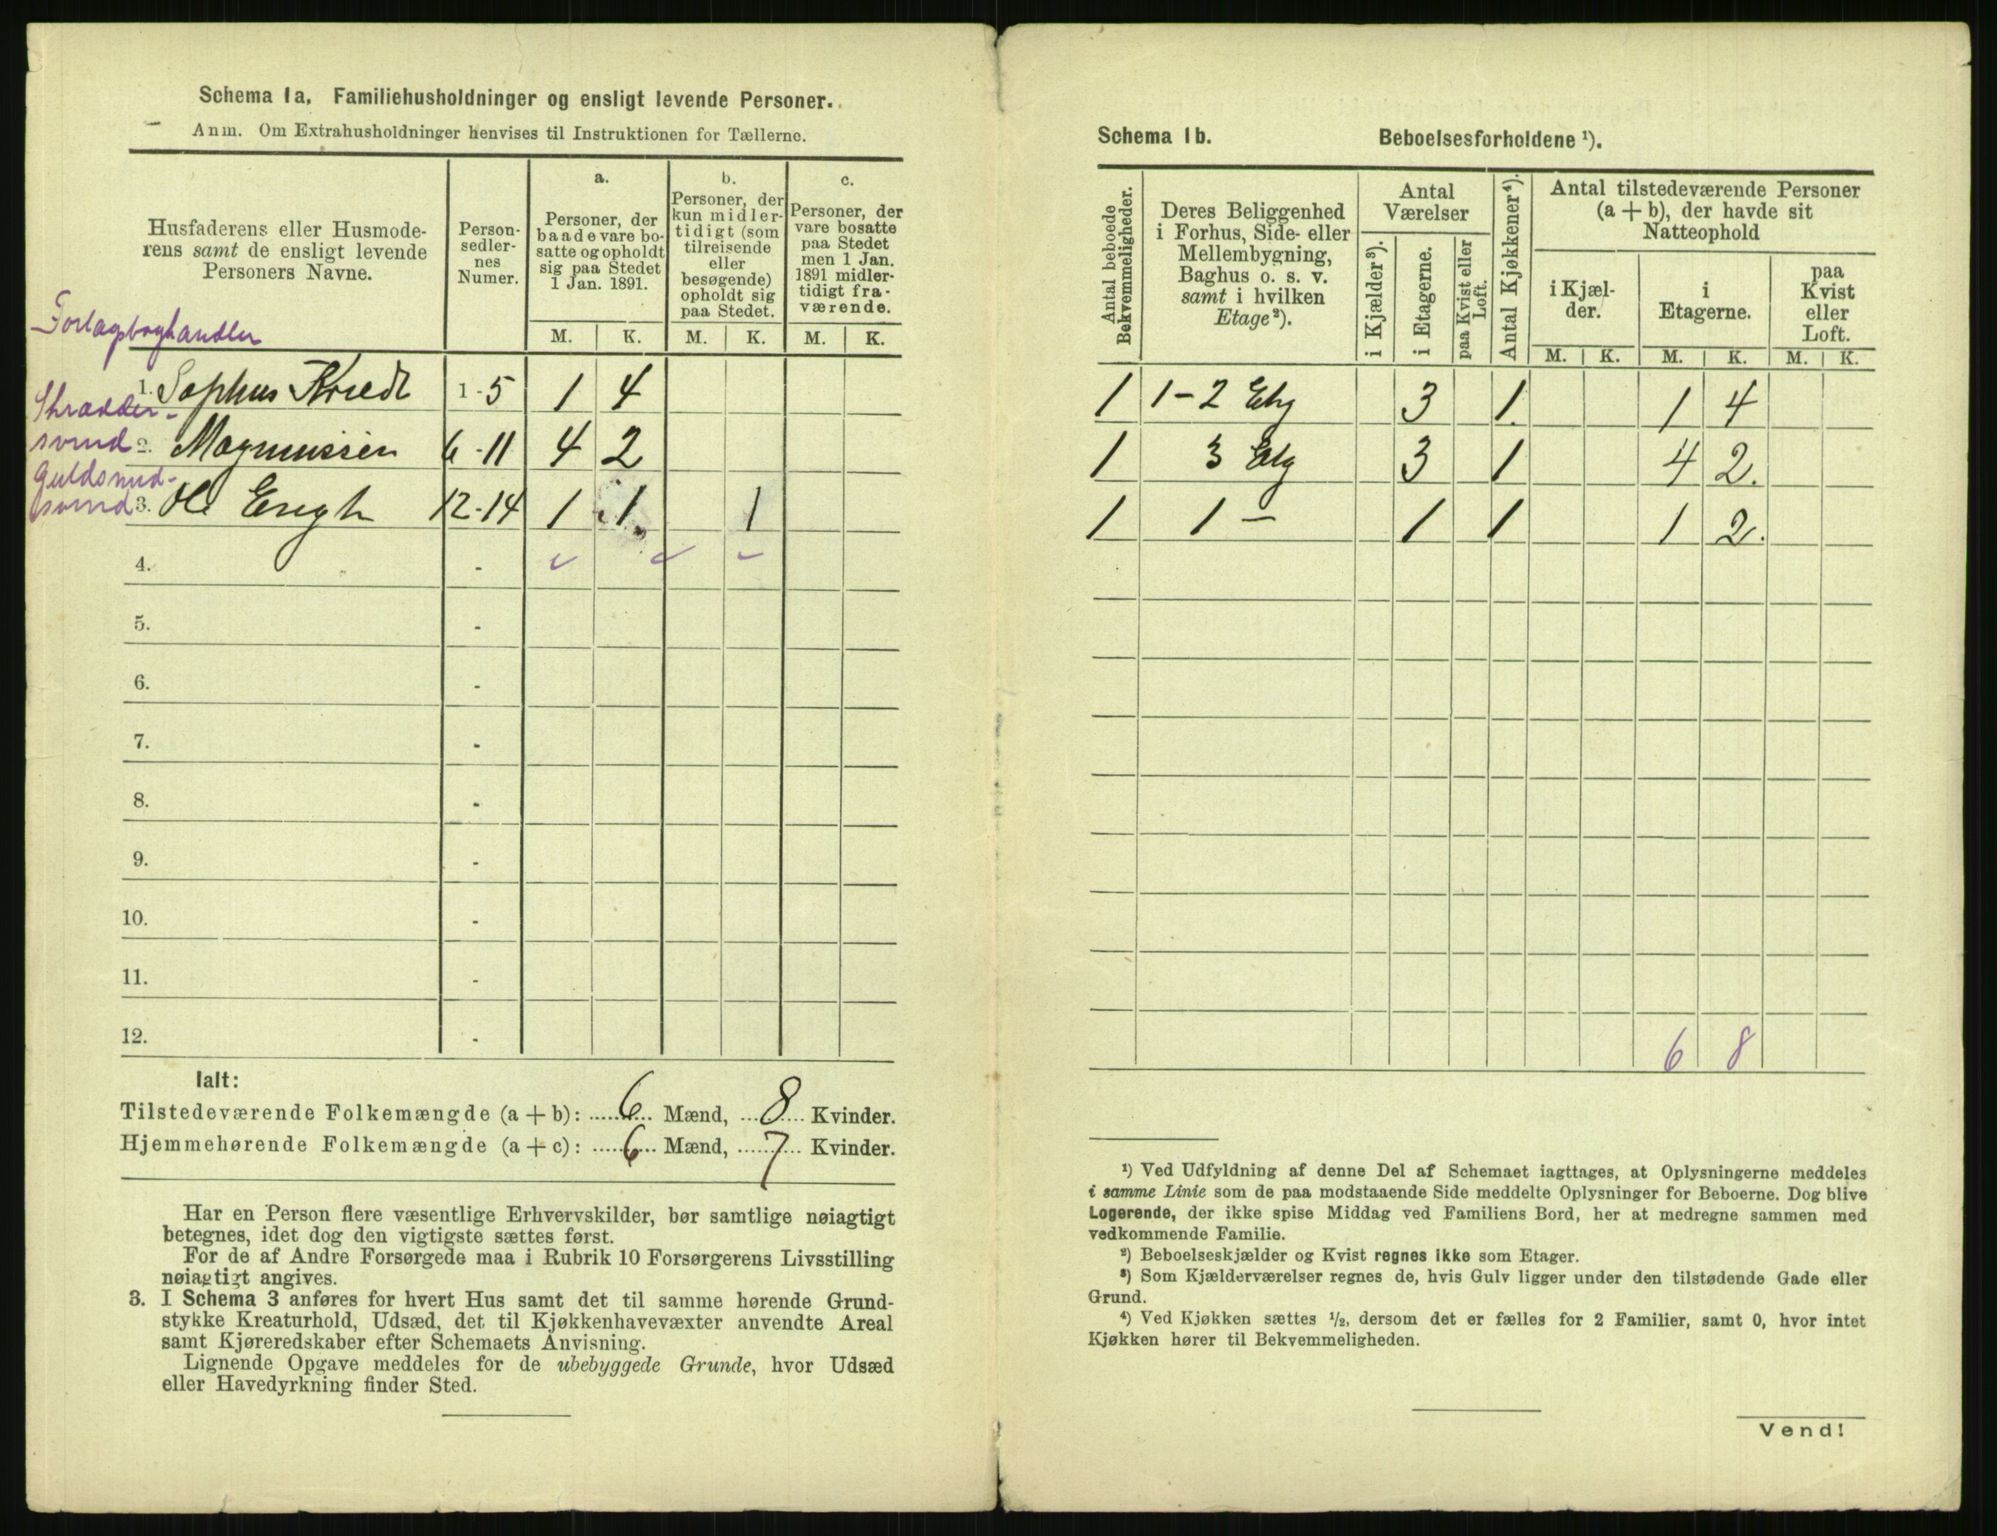 Schema 1a. Familiehusholdninger og ensligt levende Personer.
Anm. Om Extrahusholdninger henvises til Instruktionen for Tællerne.
Husfaderens eller Husmode-
rens samt de ensligt levende
Personers Navne.
Person-
sedler-
nes
Numer.
a.
Personer, der
baade vare bo-
satte og opholdt
sig paa Stedet
1 Jan. 1891.
b.
Personer, der
kun midler-
tidigt (som
tilreisende
eller
besøgende)
opholdt sig
paa Stedet.
c.
Personer, der
vare bosatte
paa Stedet
men 1 Jan.
1891 midler-
tidigt fra-
værende.
M. K. M. K. M. K.
Forlagsboghandler
1. Sophus Kriedt 1-5 1 4
Skrædder-
svend 2. Magnussen 6-11 4 2
Guldsmed-
svend 3. Ole Engh 12-14 1 1 1
4. -
5. -
6. -
7. -
8. -
9. -
10. -
11. -
12. -
Ialt:
Tilstedeværende Folkemængde (a + b): 6 Mænd, 8 Kvinder.
Hjemmehørende Folkemængde (a + c): 6 Mænd, 7 Kvinder.
Har en Person flere væsentlige Erhvervskilder, bør samtlige nøiagtigt
betegnes, idet dog den vigtigste sættes først.
For de af Andre Forsørgede maa i Rubrik 10 Forsørgerens Livsstilling
nøiagtigt angives.
3. I Schema 3 anføres for hvert Hus samt det til samme hørende Grund-
stykke Kreaturhold, Udsæd, det til Kjøkkenhavevæxter anvendte Areal
samt Kjøreredskaber efter Schemaets Anvisning.
Lignende Opgave meddeles for de ubebyggede Grunde, hvor Udsæd
eller Havedyrkning finder Sted.
Schema 1b. Beboelsesforholdene ¹).
Antal beboede
Bekvemmeligheder.
Deres Beliggenhed
i Forhus, Side- eller
Mellembygning,
Baghus o. s. v.
samt i hvilken
Etage²).
Antal
Værelser
i Kjælder³).
i Etagerne.
paa Kvist eller
Loft.
Antal Kjøkkener⁴).
Antal tilstedeværende Personer
(a + b), der havde sit
Natteophold
i Kjæl-
der.
i
Etagerne.
paa
Kvist
eller
Loft.
M. K. M. K. M. K.
1 1-2 Etg 3 1. 1 4
1 3 Etg 3 1 4 2.
1 1 — 1 1 1 2.
6 8
¹) Ved Udfyldning af denne Del af Schemaet iagttages, at Oplysningerne meddeles
i samme Linie som de paa modstaaende Side meddelte Oplysninger for Beboerne. Dog blive
Logerende, der ikke spise Middag ved Familiens Bord, her at medregne sammen med
vedkommende Familie.
²) Beboelseskjælder og Kvist regnes ikke som Etager.
³) Som Kjælderværelser regnes de, hvis Gulv ligger under den tilstødende Gade eller
Grund.
⁴) Ved Kjøkken sættes ½, dersom det er fælles for 2 Familier, samt 0, hvor intet
Kjøkken hører til Bekvemmeligheden.
Vend!